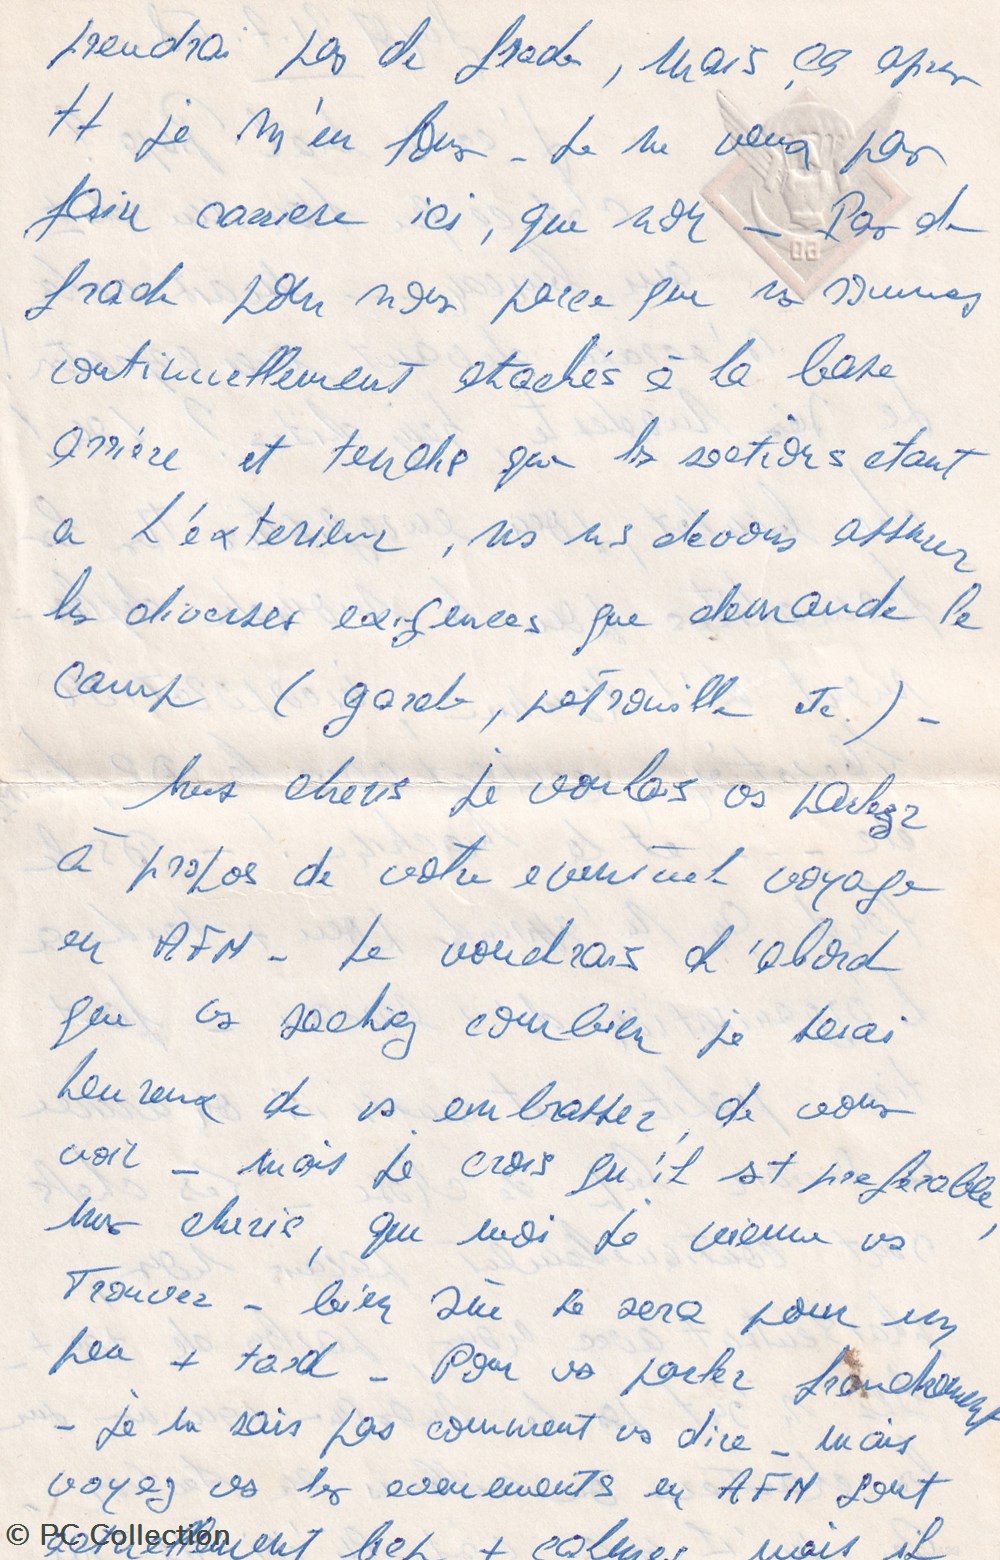 prendrai pas de grade, mais ça apres
tt je m'en fous - Je ne veux pas
faire carriere ici, que non - Pas de
grade pour nous parce que ns sommes
continuellement attachés à la base
arrière et tendis que les sections etant
a L'éxterieur, ns ns devons assurer
les diverses exigences que demande le
camp (garde, patrouille etc.) -
Mes cheris je voulais vs parler
à propos de votre eventuel voyage
en AFN - Je voudrais d'abord
que vs sachiez combien je serai
heureux de vs embrasser, de vous
voir - mais je crois qu'il est preferable,
mes cheris, que moi je vienne vs
Trouver - bien sûr ce sera pour un
peu + tard - Pour vs parler franchement
- je ne sais pas comment vs dire - mais
voyez vs les evenements en AFN sont
actuellement bcp + calmes, mais il
06
© PC Collection